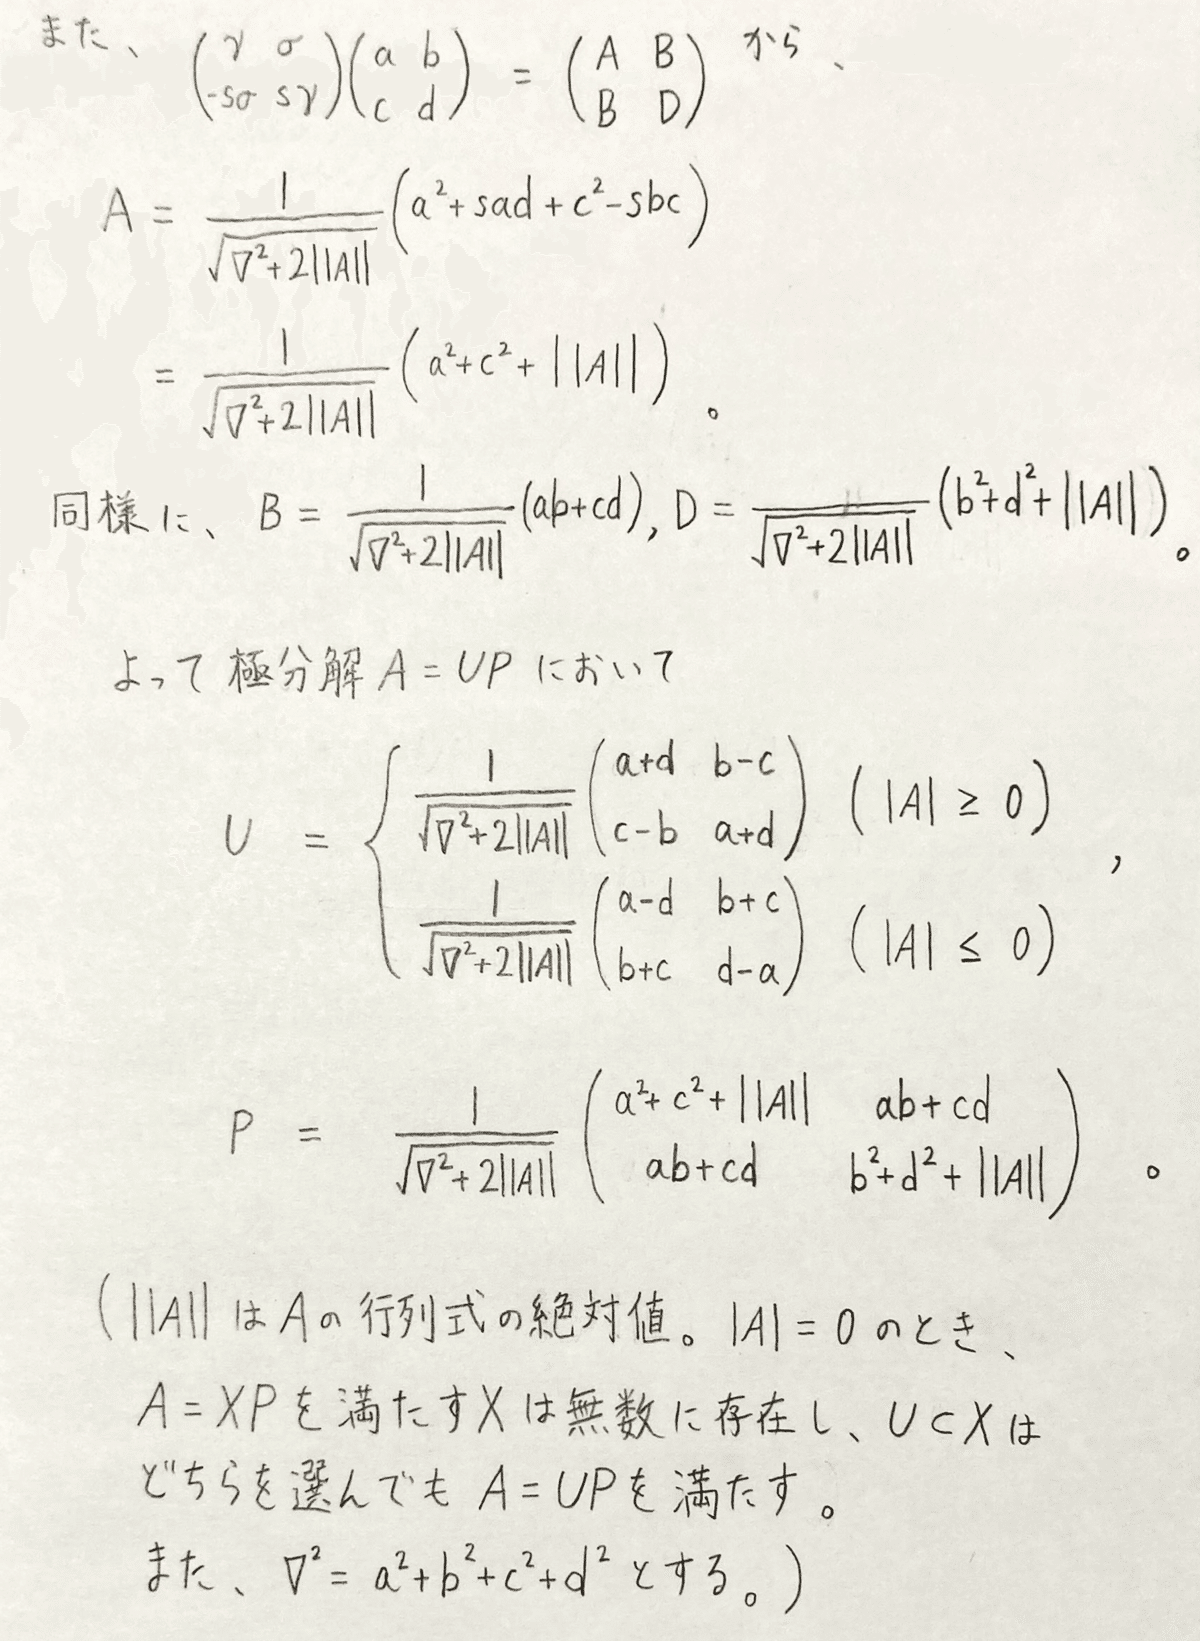 また、 (γ σ / -sσ sγ)(a b / c d) = (A B / B D) から、
A = 1/√(∇²+2||A||) (a²+sad+c²-sbc)
= 1/√(∇²+2||A||) (a²+c²+||A||)。
同様に、 B = 1/√(∇²+2||A||) (ab+cd), D = /√(∇²+2||A||) (b²+d²+||A||)。
よって極分解 A=UP において
U = { 1/√(∇²+2||A||) (a+d b-c / c-b a+d) (|A| ≥ 0)
1/√(∇²+2||A||) (a-d b+c / b+c d-a) (|A| ≤ 0) ,
P = 1/√(∇²+2||A||) (a²+c²+||A|| ab+cd / ab+cd b²+d²+||A||) 。
(||A|| は A の行列式の絶対値。|A|=0 のとき、
A=XP を満たす X は無数に存在し、U⊂X は
どちらを選んでも A=UP を満たす。
また、∇² = a²+b²+c²+d² とする。)